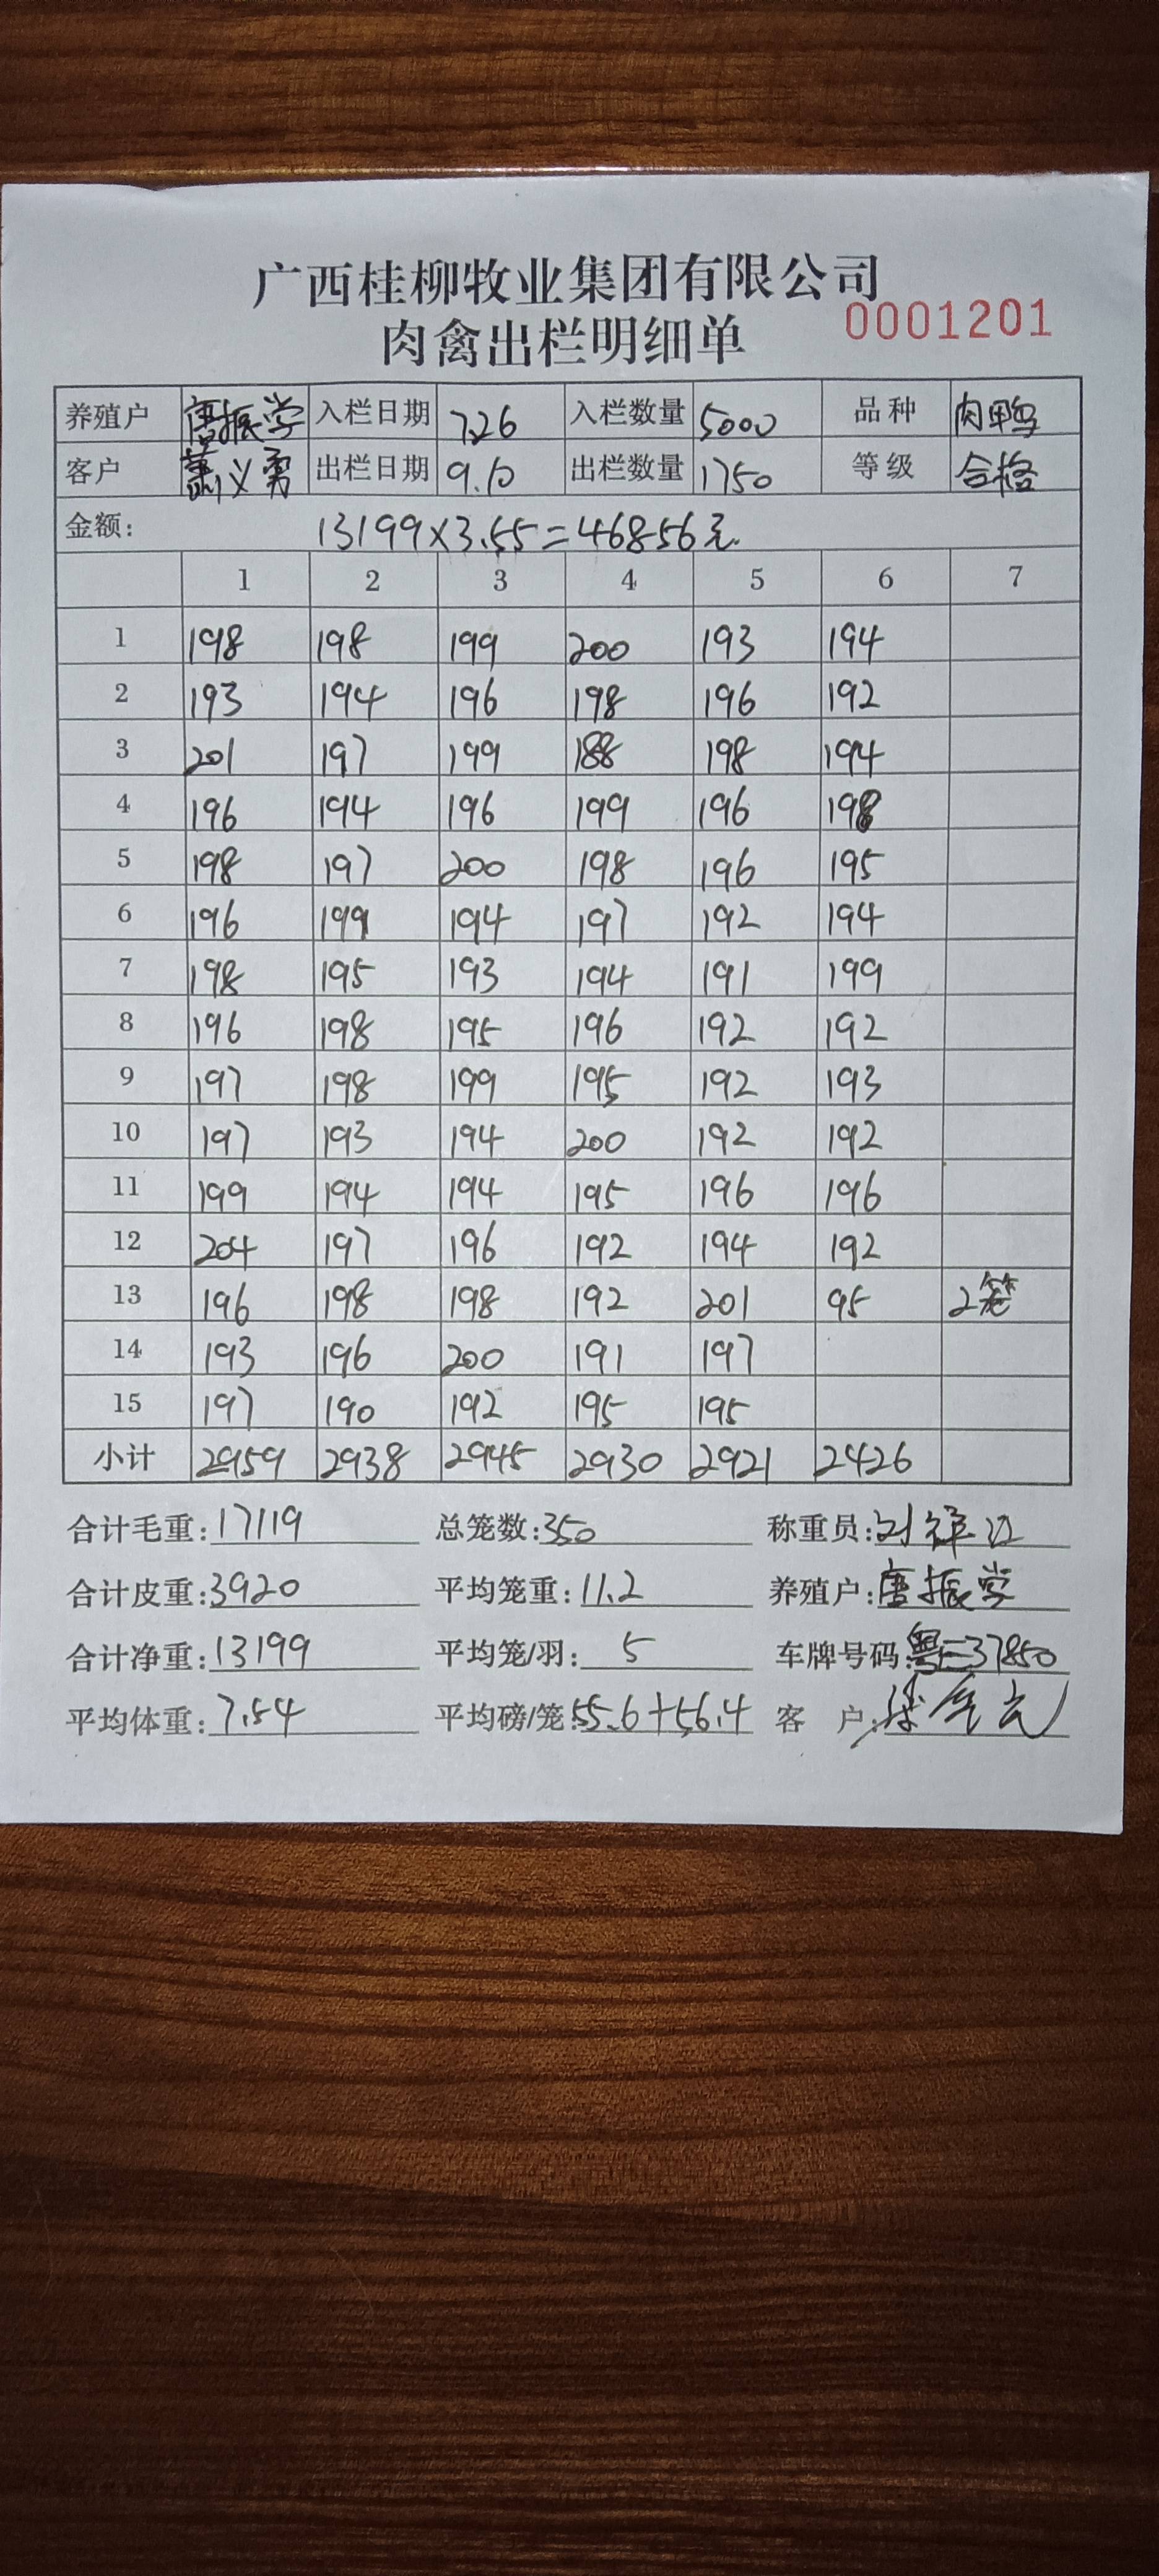 广西桂柳牧业集团有限公司
肉禽出栏明细单 0001201
养殖户 唐振学 入栏日期 7.26 入栏数量 5000 品种 肉鸭
客户 萧义勇 出栏日期 9.10 出栏数量 1750 等级 合格
金额: 13199×3.55=46856元.
1 2 3 4 5 6 7
1 198 198 199 200 193 194
2 193 194 196 198 196 192
3 201 197 199 188 198 194
4 196 194 196 199 196 198
5 198 197 200 198 196 195
6 196 199 194 197 192 194
7 198 195 193 194 191 199
8 196 198 195 196 192 192
9 197 198 199 195 192 193
10 197 193 194 200 192 192
11 199 194 194 195 196 196
12 204 197 196 192 194 192
13 196 198 198 192 201 95 2笼
14 193 196 200 191 197
15 197 190 192 195 195
小计 2959 2938 2945 2930 2921 2426
合计毛重:17119 总笼数:350 称重员:刘
合计皮重:3920 平均笼重:11.2 养殖户:唐振学
合计净重:13199 平均笼/羽: 5 车牌号码:粤E37850
平均体重:7.54 平均磅/笼:55.6+56.4 客 户: